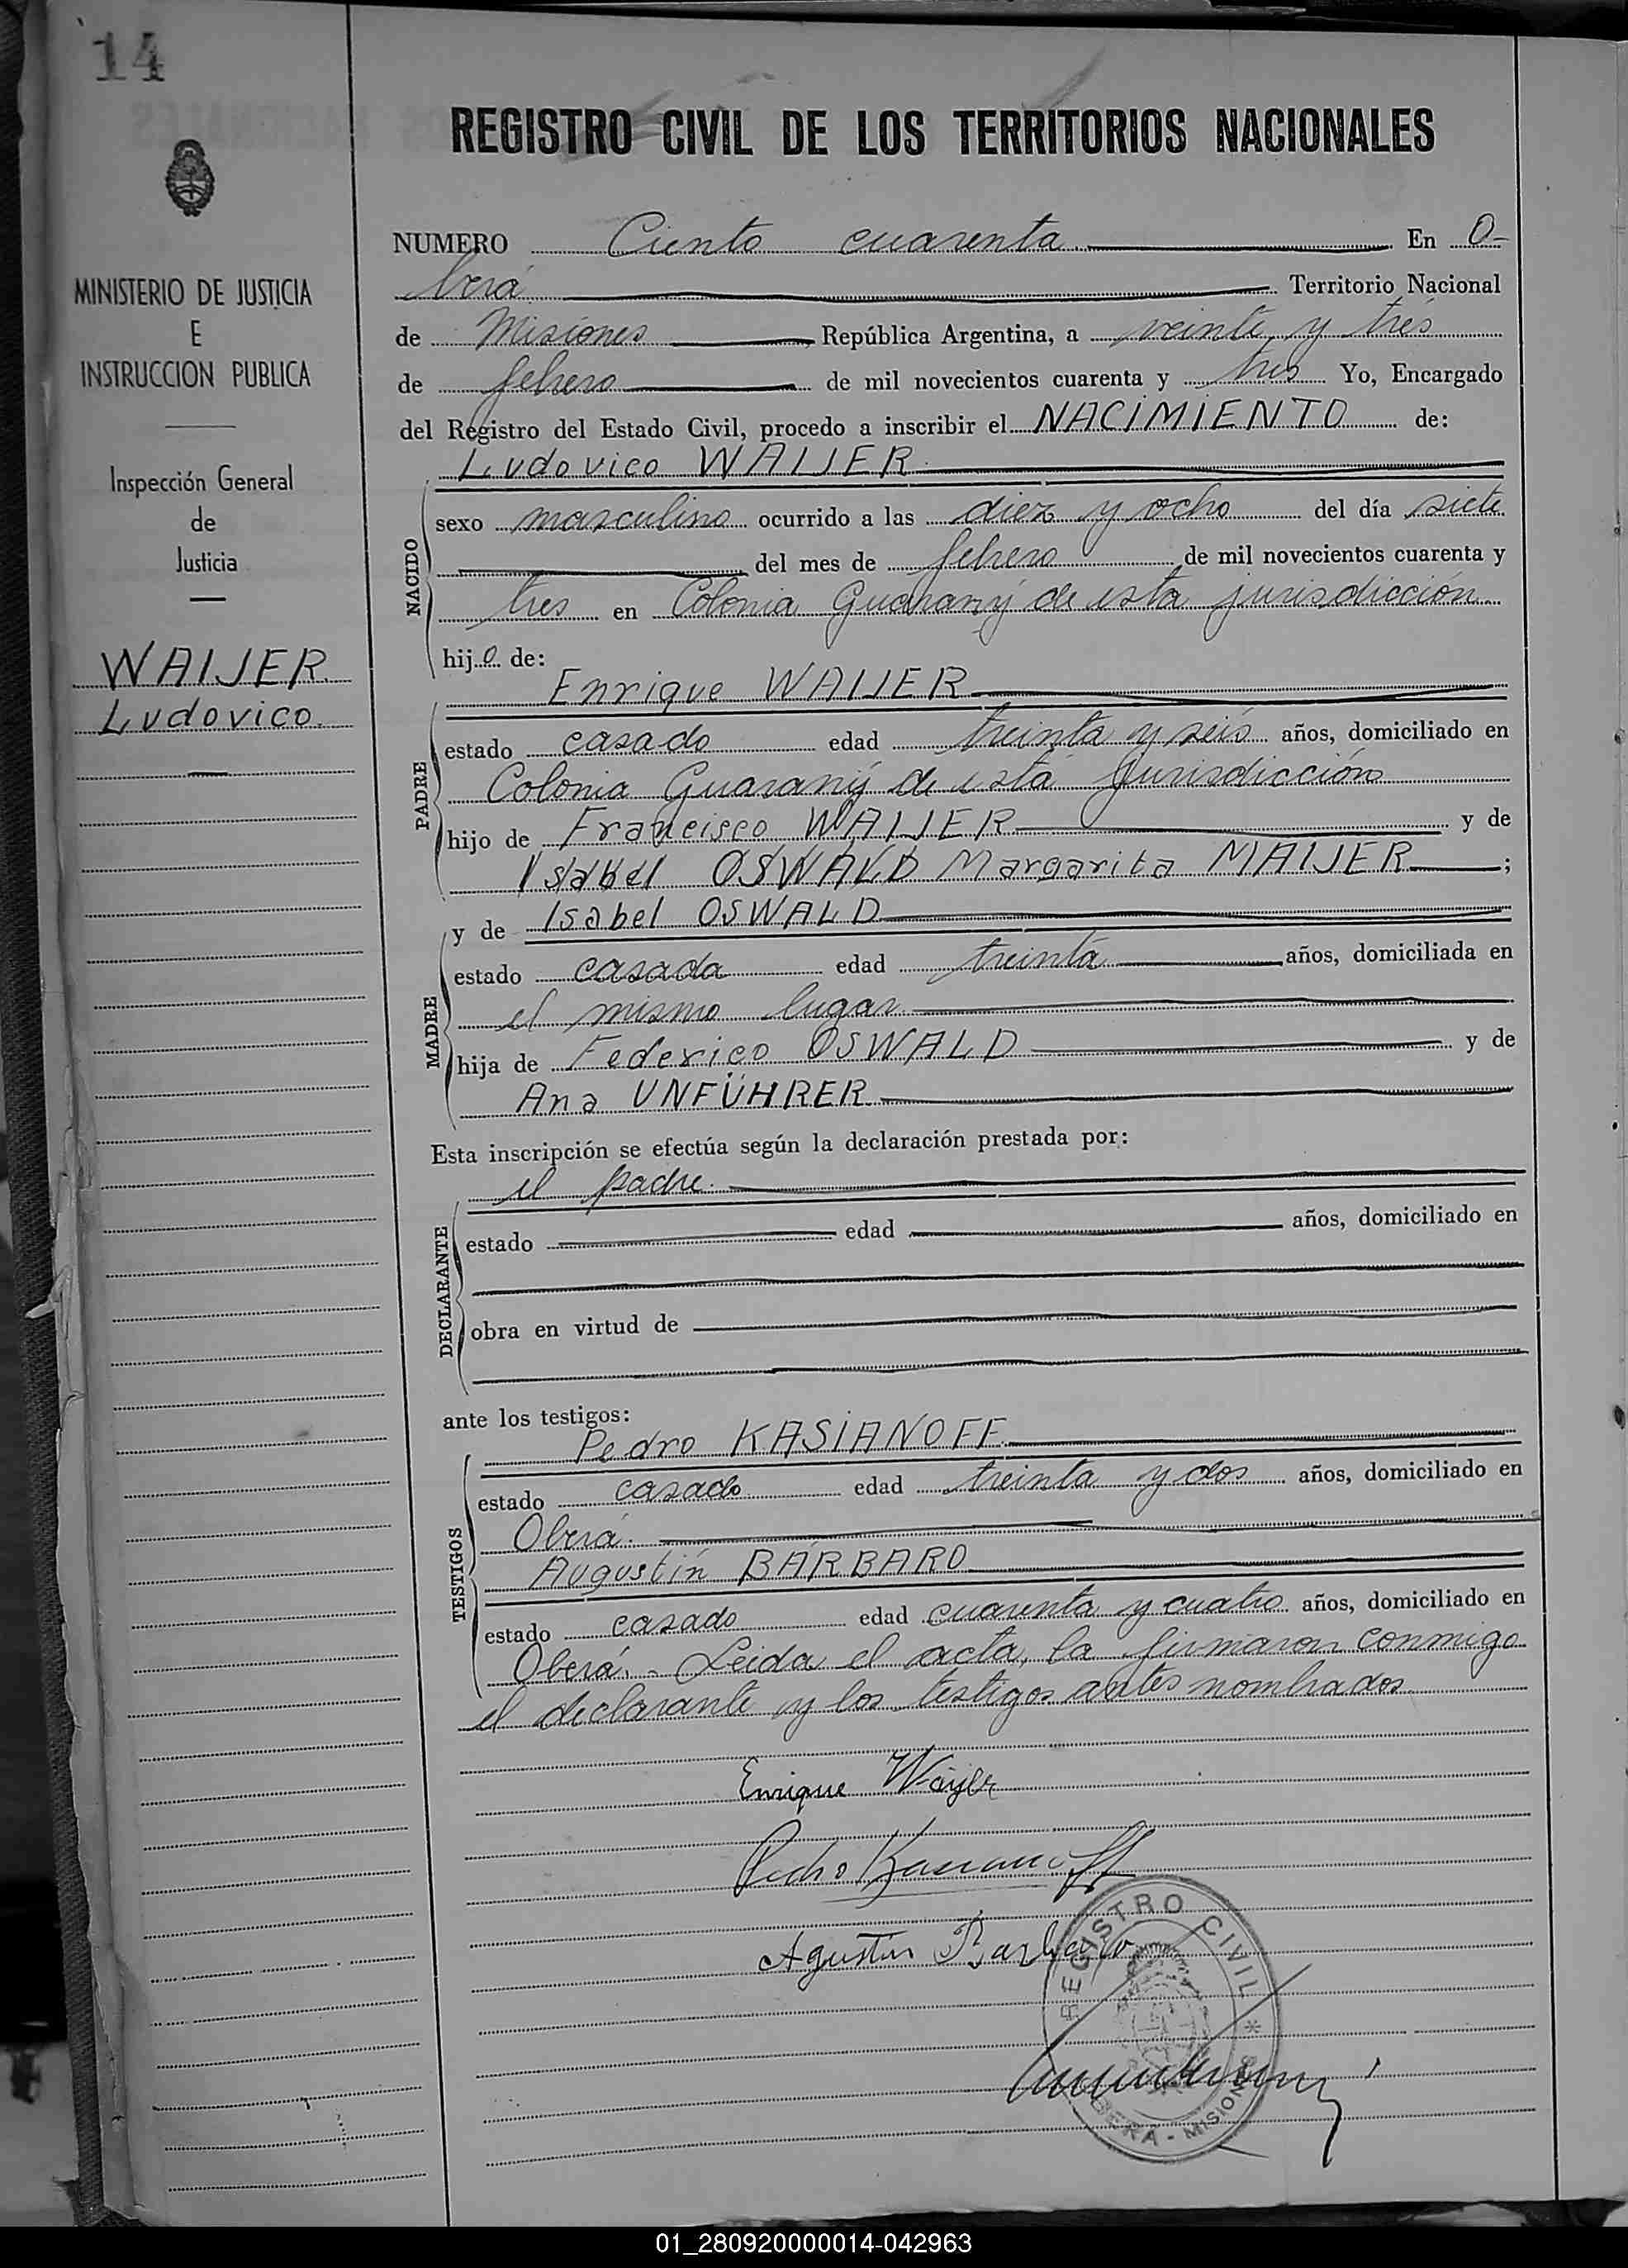 14
REGISTRO CIVIL DE LOS TERRITORIOS NACIONALES
MINISTERIO DE JUSTICIA
E
INSTRUCCION PUBLICA
Inspección General
de
Justicia
WAIJER
Ludovico.
NUMERO Ciento cuarenta En O-
berá Territorio Nacional
de Misiones República Argentina, a veinte y tres
de febrero de mil novecientos cuarenta y tres Yo, Encargado
del Registro del Estado Civil, procedo a inscribir el NACIMIENTO de:
Ludovico WAIJER
NACIDO
sexo masculino ocurrido a las diez y ocho del día siete
del mes de febrero de mil novecientos cuarenta y
tres en Colonia Guarany de esta jurisdicción
hijo de:
Enrique WAIJER
PADRE
estado casado edad treinta y seis años, domiciliado en
Colonia Guarany de esta jurisdicción
hijo de Francisco WAIJER y de
Isabel OSWALD Margarita MAIJER ;
y de Isabel OSWALD
MADRE
estado casada edad treinta años, domiciliada en
el mismo lugar
hija de Federico OSWALD y de
Ana UNFÜHRER
Esta inscripción se efectúa según la declaración prestada por:
el padre.
DECLARANTE
estado edad años, domiciliado en
obra en virtud de
ante los testigos:
Pedro KASIANOFF
TESTIGOS
estado casado edad treinta y dos años, domiciliado en
Oberá.
Augustín BARBARO
estado casado edad cuarenta y cuatro años, domiciliado en
Oberá. - Leida el acta, la firmaron conmigo
el declarante y los testigos antes nombrados
Enrique Waijer
Pedro Kasianoff
Agustin Barbaro
REGISTRO CIVIL * OBERA - MISIONES
01_280920000014-042963